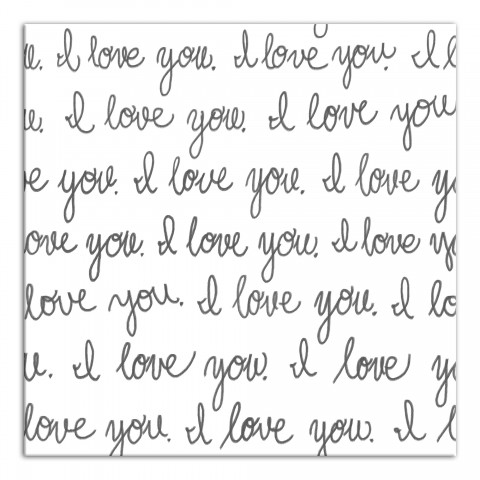 u. I love you. I love you. I l
u. I love you. I love you
e you. I love you. I love y
ove you. I love you. I love y
love you. I love you. I lo
u. I love you. I love y
love you. I love you. I l